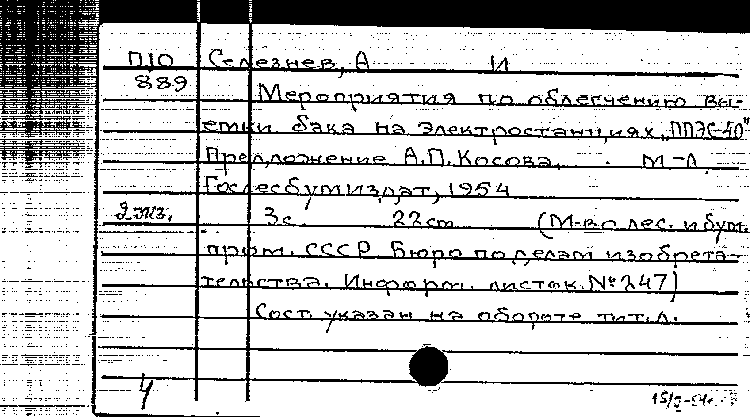 П10 Селезнев, А И
889
Мероприятия по облегчению вы-
емки бака на электростанциях „ППЭС-40"
Предложение А.П. Косова. М-Л.
Гослесбумиздат, 1954
2 экз. 3с. 22 cm (М-во лес. и бум.
пром. СССР. Бюро по делам изобрета-
тельства. Информ. листок. № 247)
Сост. указан на обороте тит. л.
4